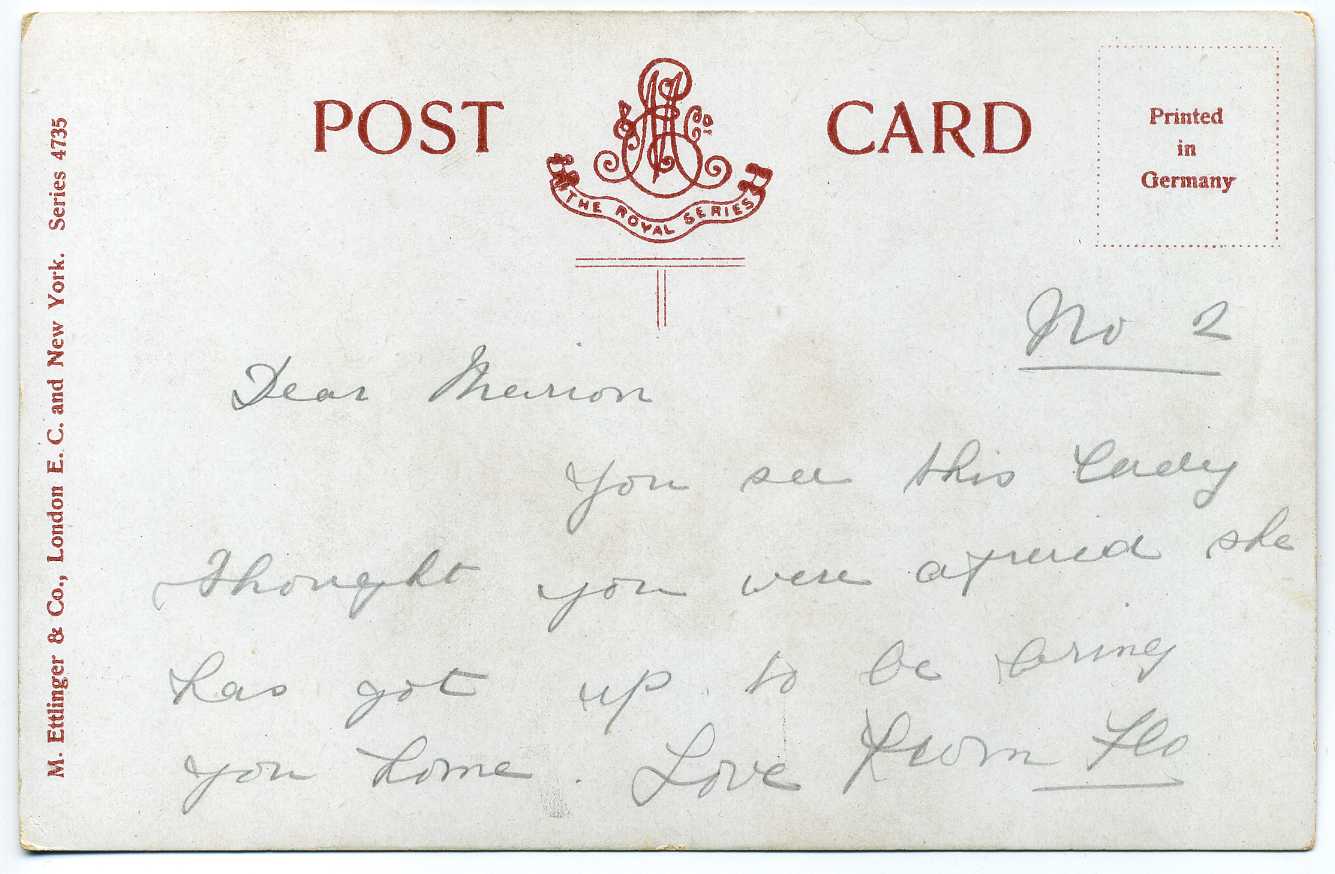 POST CARD
Co.
THE ROYAL SERIES
Printed
in
Germany
M. Ettlinger & Co., London E. C. and New York. Series 4735
No 2
Dear Marion
You see this Lady
thought you were afraid she
has got up to be bring
you home. Love from Flo